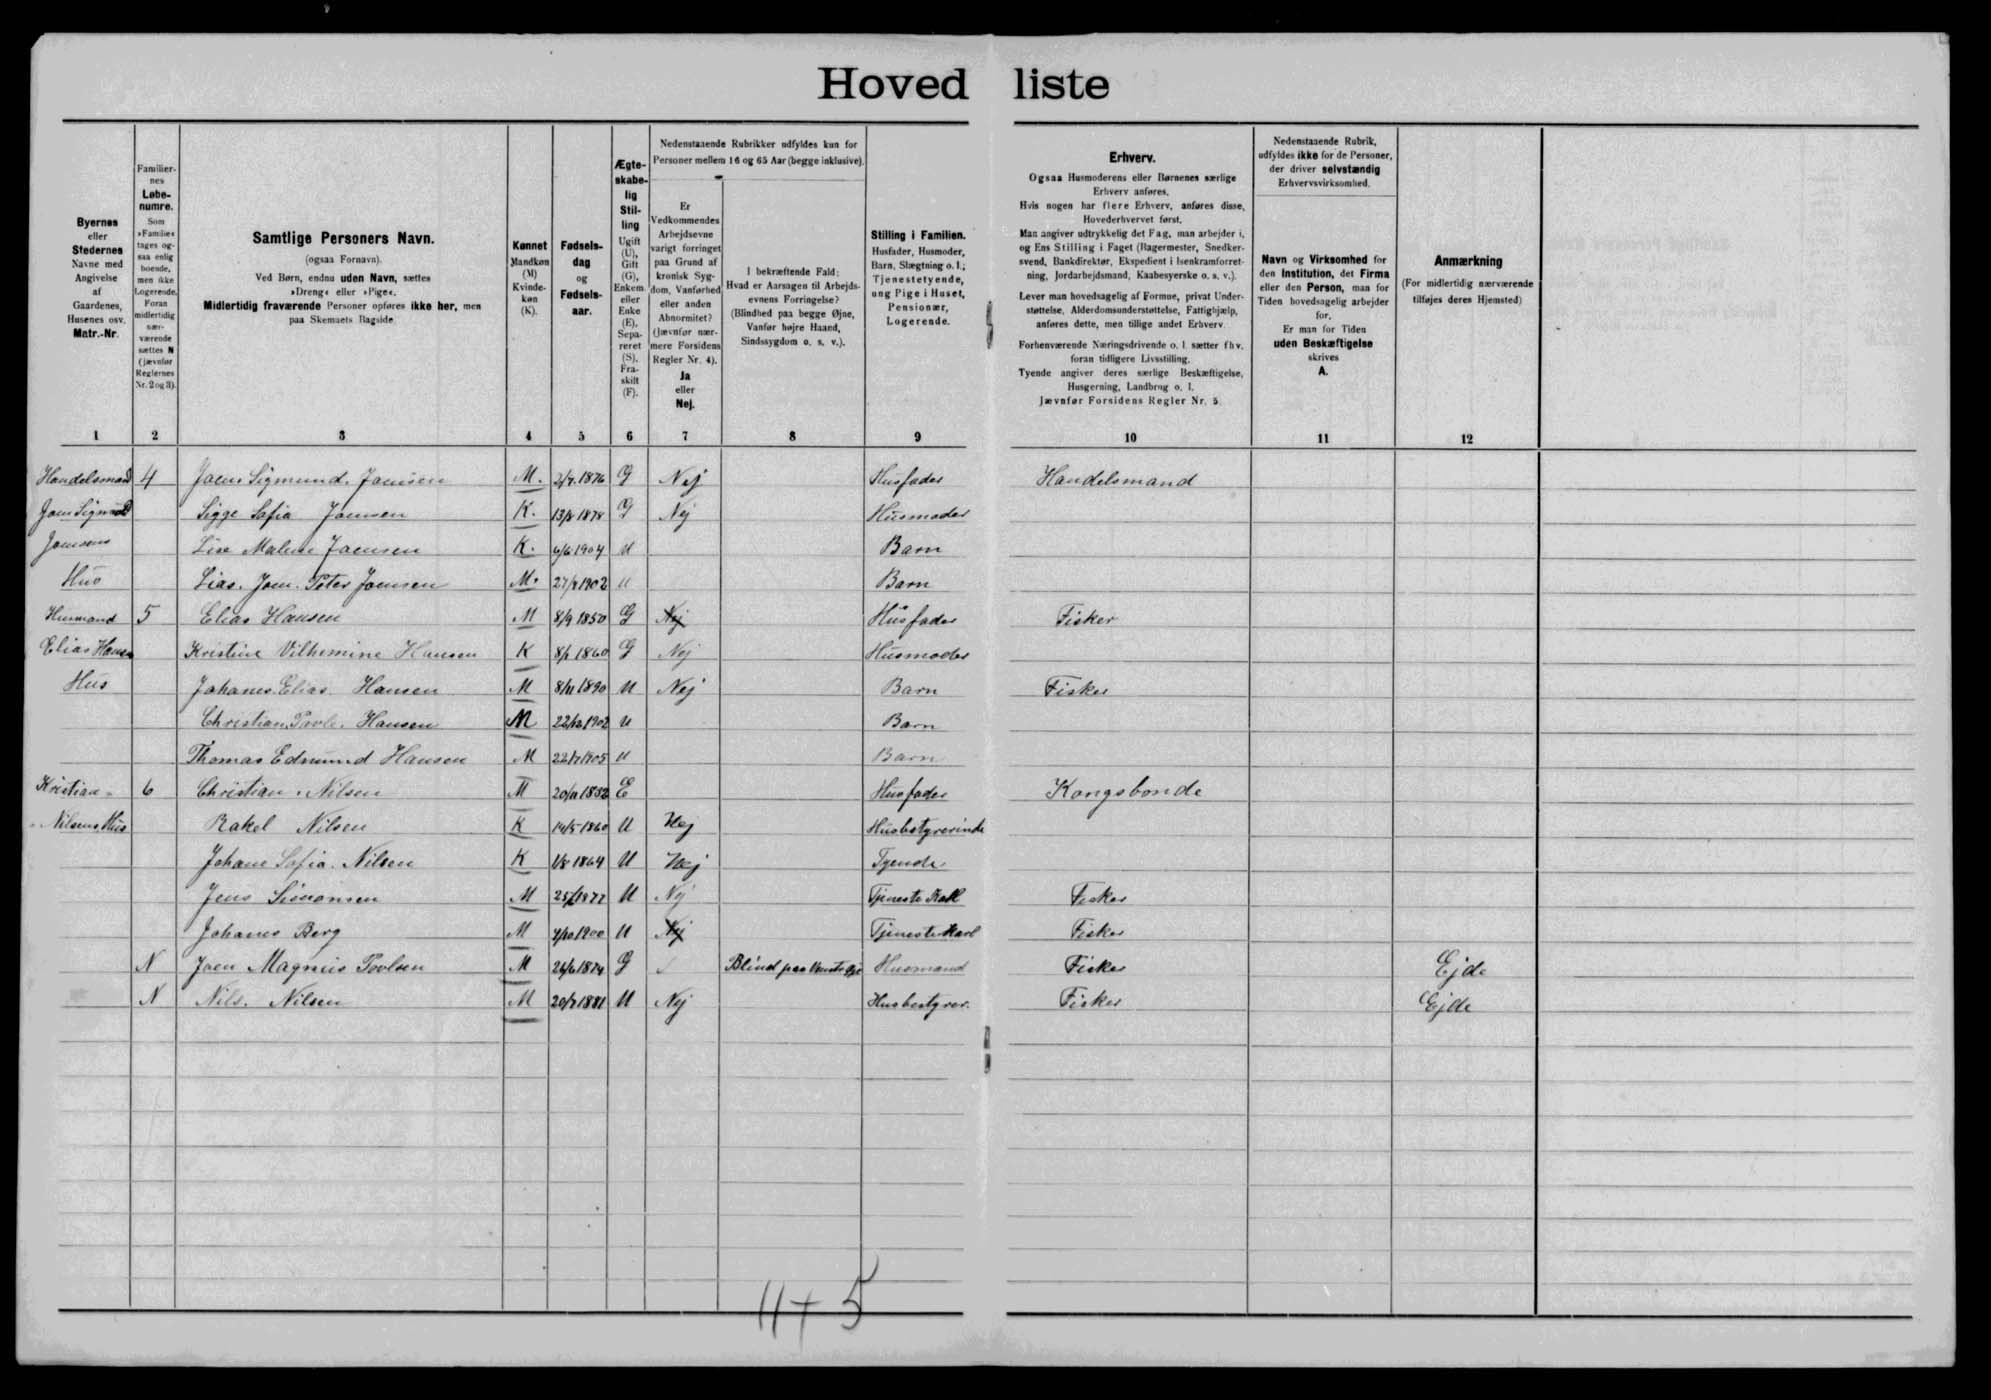 Hoved liste
Byernes
eller
Stedernes
Navne med
Angivelse
af
Gaardenes,
Husenes osv.
Matr.-Nr.
Familier-
nes
Løbe-
numre.
Som
»Familie«
tages og-
saa enlig
boende,
men ikke
Logerende.
Foran
midlertidig
nær-
værende
sættes N
(jævnfør
Reglernes
Nr. 2 og 3).
Samtlige Personers Navn.
(ogsaa Fornavn).
Ved Børn, endnu uden Navn, sættes
»Dreng« eller »Pige«.
Midlertidig fraværende Personer opføres ikke her, men
paa Skemaets Bagside.
Kønnet
Mandkøn
(M)
Kvinde-
køn
(K).
Fødsels-
dag
og
Fødsels-
aar.
Ægte-
skabe-
lig
Stil-
ling
Ugift
(U),
Gift
(G),
Enkem.
eller
Enke
(E),
Sepa-
reret
(S),
Fra-
skilt
(F).
Nedenstaaende Rubrikker udfyldes kun for
Personer mellem 16 og 65 Aar (begge inklusive).
Er
Vedkommendes
Arbejdsevne
varigt forringet
paa Grund af
kronisk Syg-
dom, Vanførhed
eller anden
Abnormitet?
(Jævnfør nær-
mere Forsidens
Regler Nr. 4).
Ja
eller
Nej.
I bekræftende Fald:
Hvad er Aarsagen til Arbejds-
evnens Forringelse?
(Blindhed paa begge Øjne,
Vanfør højre Haand,
Sindssygdom o. s. v.).
Stilling i Familien.
Husfader, Husmoder,
Barn, Slægtning o. l.;
Tjenestetyende,
ung Pige i Huset,
Pensionær,
Logerende.
Erhverv.
Ogsaa Husmoderens eller Børnenes særlige
Erhverv anføres.
Hvis nogen har flere Erhverv, anføres disse,
Hovederhvervet først.
Man angiver udtrykkelig det Fag, man arbejder i,
og Ens Stilling i Faget (Bagermester, Snedker-
svend, Bankdirektør, Ekspedient i Isenkramforret-
ning, Jordarbejdsmand, Kaabesyerske o. s. v.).
Lever man hovedsagelig af Formue, privat Under-
støttelse, Alderdomsunderstøttelse, Fattighjælp,
anføres dette, men tillige andet Erhverv.
Forhenværende Næringsdrivende o. l. sætter fhv.
foran tidligere Livsstilling.
Tyende angiver deres særlige Beskæftigelse,
Husgerning, Landbrug o. l.
Jævnfør Forsidens Regler Nr. 5.
Nedenstaaende Rubrik,
udfyldes ikke for de Personer,
der driver selvstændig
Erhvervsvirksomhed.
Navn og Virksomhed for
den Institution, det Firma
eller den Person, man for
Tiden hovedsagelig arbejder
for.
Er man for Tiden
uden Beskæftigelse
skrives
A.
Anmærkning
(For midlertidig nærværende
tilføjes deres Hjemsted)
1 2 3 4 5 6 7 8 9 10 11 12
Handelsmand 4 Joen Sigmund. Joensen M. 2/4.1876 G Nej Husfader Handelsmand
Joen Sigmund Sigge Sofia Joensen K. 13/8 1878 G Nej Husmoder
Joensens Lise Malene Joensen K. 6/6 1904 U Barn
Hus Lias. Joen. Peter Joensen M. 27/8 1902 U Barn
Husmand 5 Elias Hansen M 8/9 1850 G Nej Husfader Fisker
Elias Hansen Kristine Vilhemine Hansen K 8/1 1860 G Nej Husmoder
Hus Johanes. Elias. Hansen M 8/11 1890 U Nej Barn Fisker
Christian. Povle. Hansen M 22/12 1902 U Barn
Thomas Edmund Hansen M 22/7 1905 U Barn
Kristian 6 Christian. Nilsen M 20/11 1832 E Husfader Kongsbonde
Nilsens Hus Rakel Nilsen K 14/5 1860 U Nej Husbestyrerinde
Johane Sofia. Nilsen K 1/8 1864 U Nej Tyende
Jens Simonsen M 1877 U Nej Tjeneste Karl Fisker
Johanes Berg M 4/10 1900 U Nej Tjeneste Karl Fisker
N Joen Magnus Povlsen M 26/6 1874 G Blind paa Vensts Øje Husmand Fisker Ejde
N Nils. Nilsen M 20/7 1881 U Nej Husbestyrer. Fisker Ejde
11 + 5